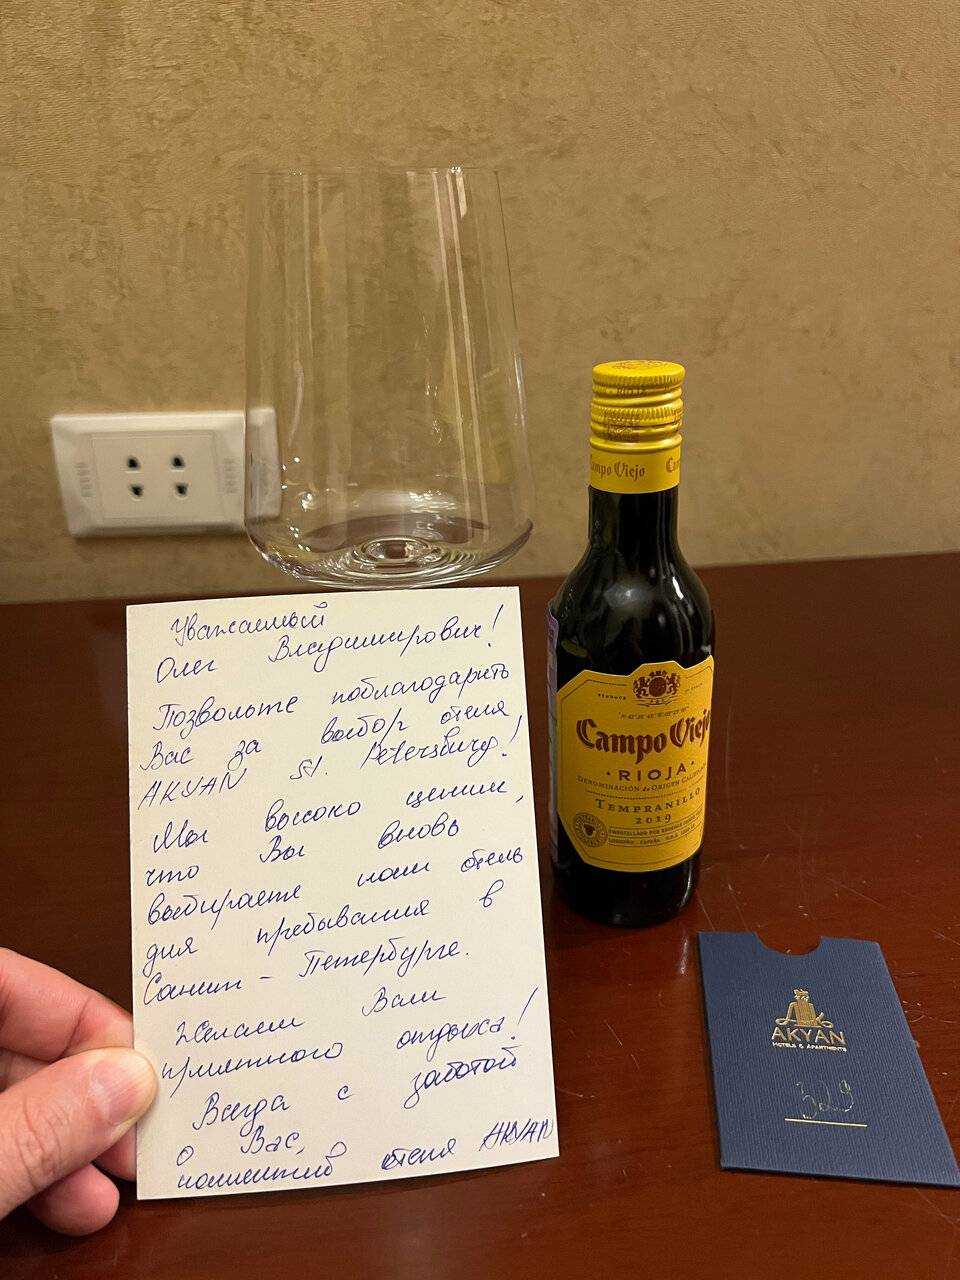 Уважаемый
Олег Владимирович!
Позвольте поблагодарить
Вас за выбор отеля
AKYAN St. Petersburg!
Мы высоко ценим,
что Вы вновь
выбираете наш отель
для пребывания в
Санкт-Петербурге.
Желаем Вам
приятного отдыха!
Всегда с заботой
о Вас,
коллектив отеля AKYAN
Campo Viejo
Campo Viejo
RIOJA
DENOMINACIÓN de ORIGEN CALIFICADA
TEMPRANILLO
2019
AKYAN
HOTELS & APARTMENTS
329